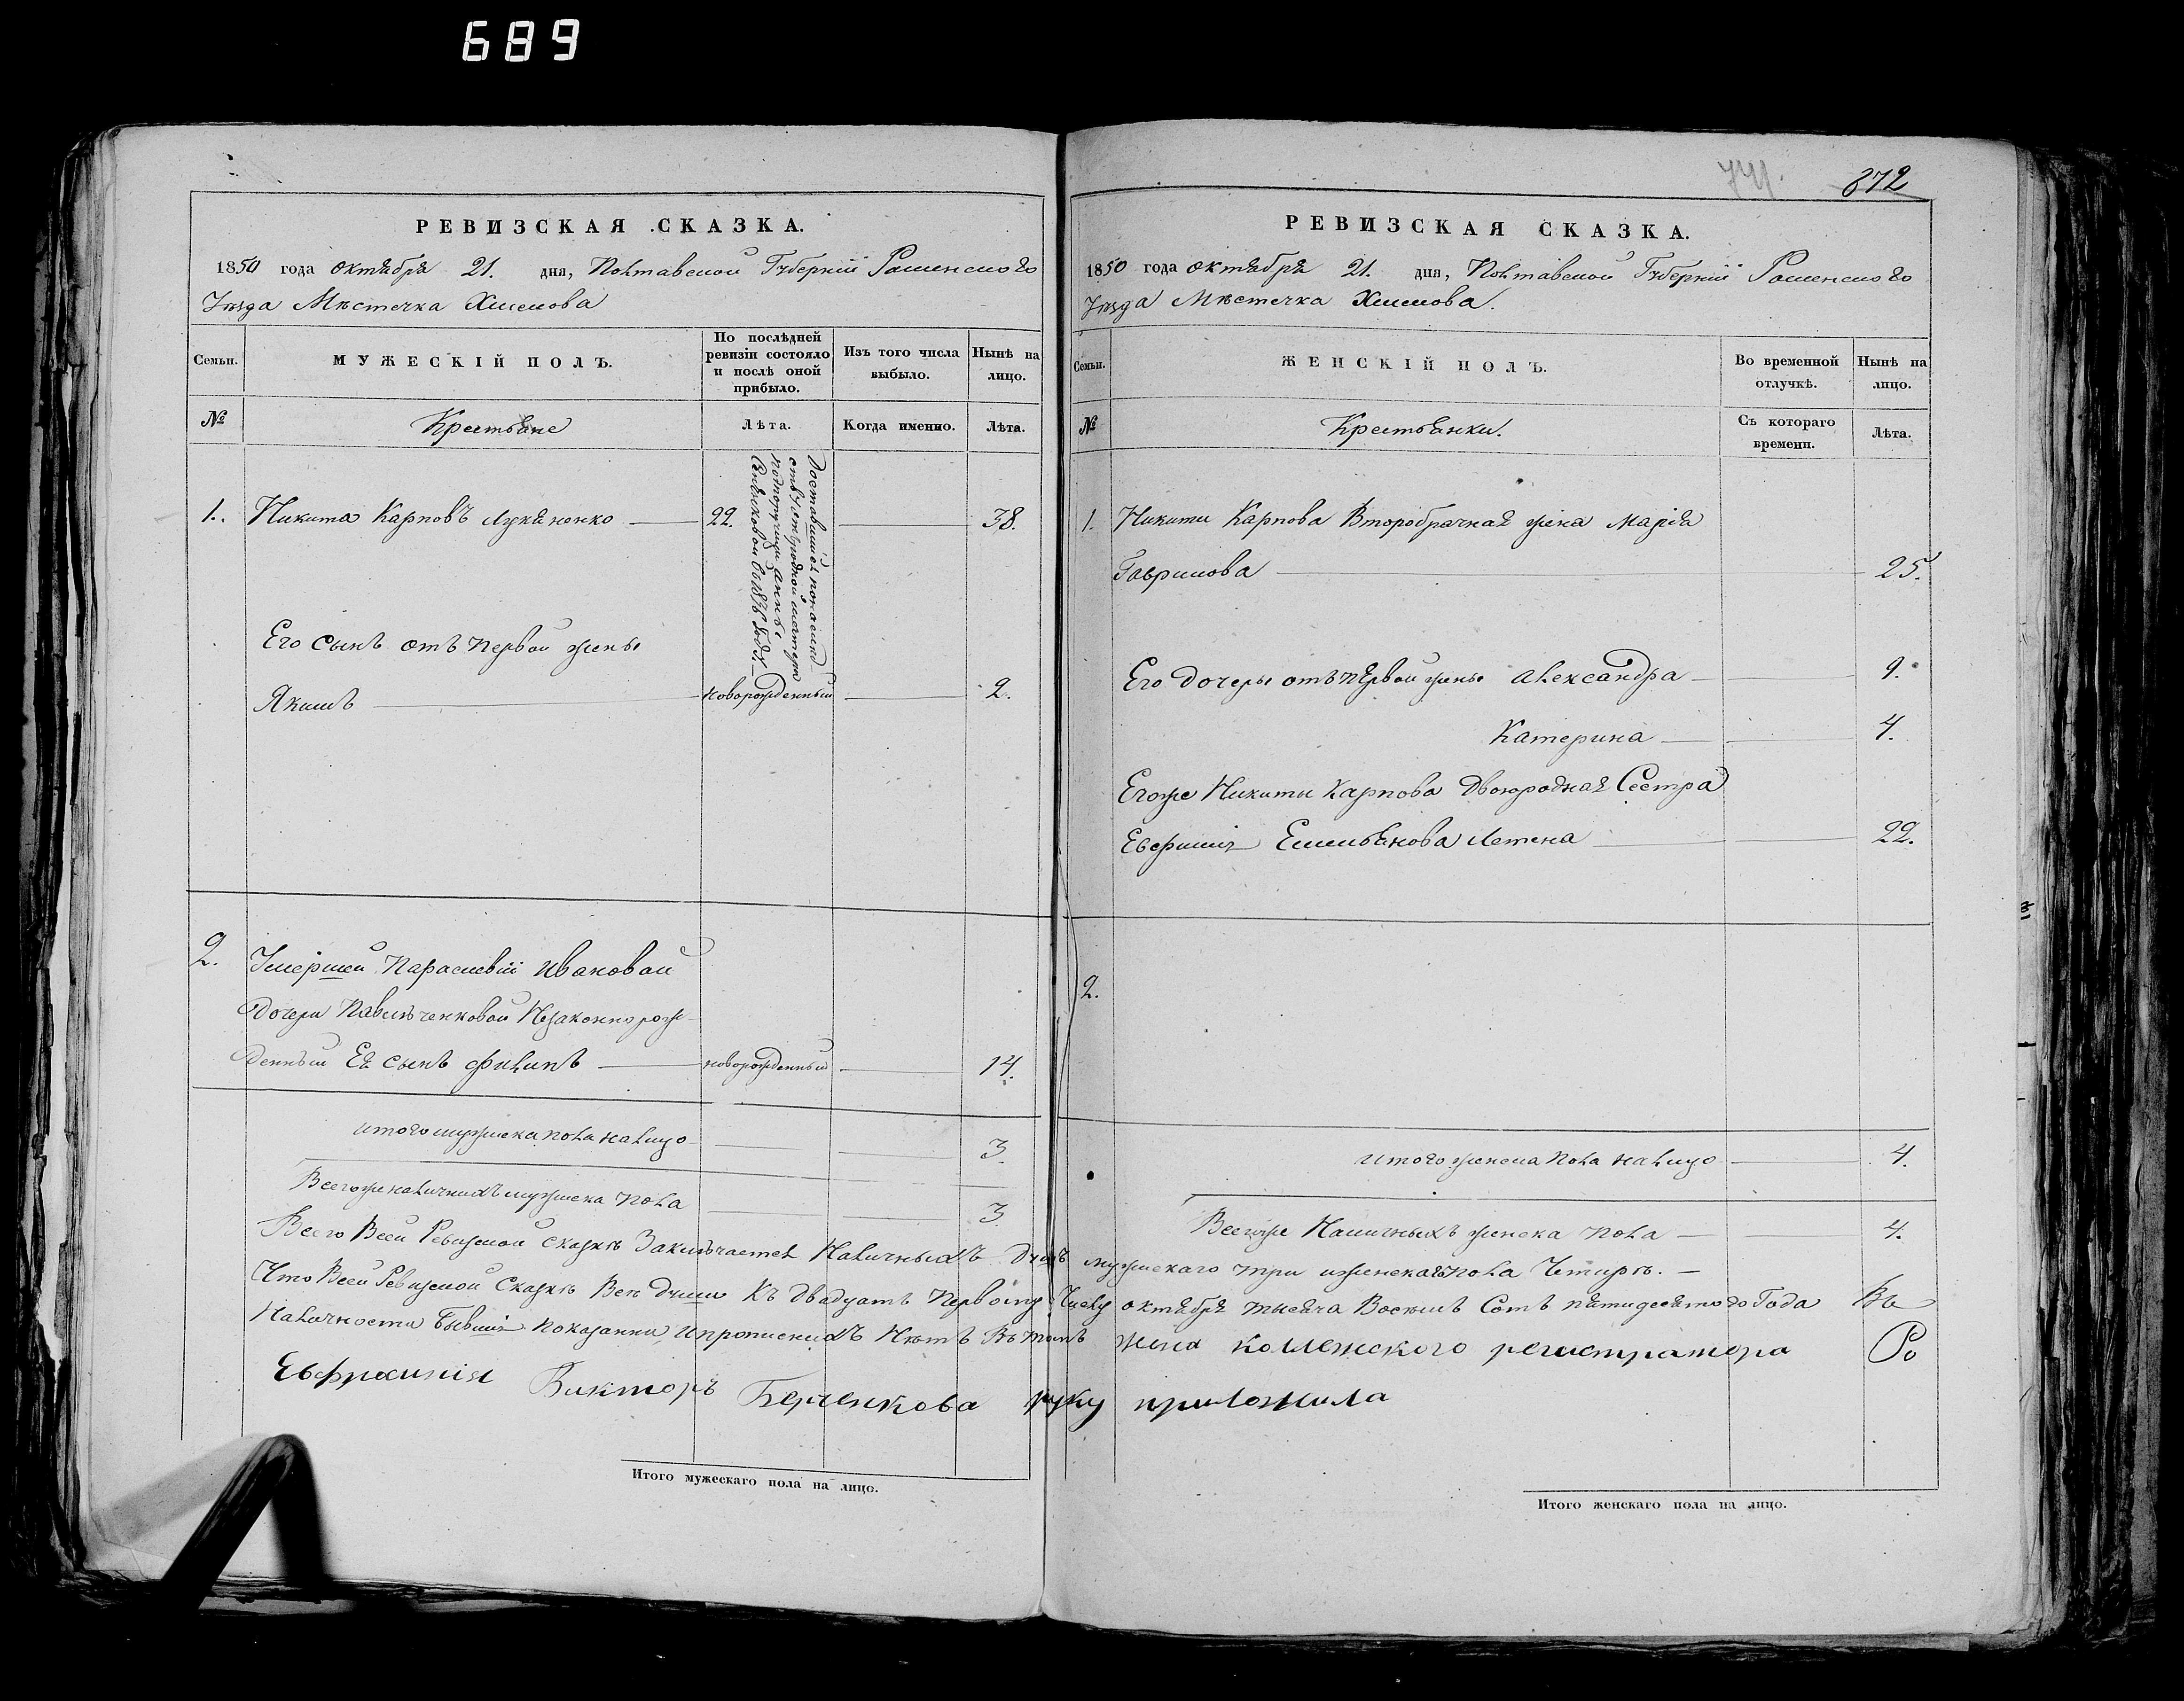 689
744.
872
РЕВИЗСКАЯ СКАЗКА.
1850 года октября 21. дня, Полтавской Губерніи Роменского
Уезда Мѣстечка Хмелова
Семьи.
МУЖЕСКІЙ ПОЛЪ.
По послѣдней ревизіи состояло и послѣ оной прибыло.
Изъ того числа выбыло.
Нынѣ на лицо.
№
Крестьяне
Лѣта.
Когда именно.
Лѣта.
Доставшійся по наслѣд
ству отъ родной матери
подпоручицы Анны
въ 1838 году
1. Никита Карповъ Лукяненко 22. 38.
Его сынъ отъ первой жены
Якимъ новорожденный 2.
2. Умершей Параскевіи Ивановой
дочери Павличенковой Незаконнорож
денный Ея сынъ Филипъ новорожденный 14.
итого мужеска пола налицо 3.
Всегоже наличныхъ мужеска пола 3
РЕВИЗСКАЯ СКАЗКА.
1850 года октября 21. дня, Полтавской Губерніи Роменского
Уезда Мѣстечка Хмелова.
Семьи.
ЖЕНСКІЙ ПОЛЪ.
Во временной отлучкѣ.
Нынѣ на лицо.
№
Крестьянки.
Съ котораго времени.
Лѣта.
1. Никиты Карпова Второбрачная жена Марія
Гаврилова 25.
Его дочери отъ первой жены Александра 9.
Катерина 4.
Егоже Никиты Карпова Двоюродная Сестра
Евфимія Емельянова Летена 22.
2.
итого женска пола налицо 4.
Всегоже Наличныхъ женска пола 4.
Всего Всей Ревизской сказкѣ Заключается Наличныхъ Душъ мужескаго три и женскаго пола Четыре.
Что Всей Ревизской Сказкѣ Все души Къ двадцать первому Числу октября тысяча Восемь Сотъ пятидесятого Года Въ
Наличности Бывшія показанны, и прописныхъ Нѣтъ Въ томъ жена коллежского регистратора
Ефросинія Викторъ Берченкова руку приложила
Итого мужескаго пола на лицо.
Итого женскаго пола на лицо.